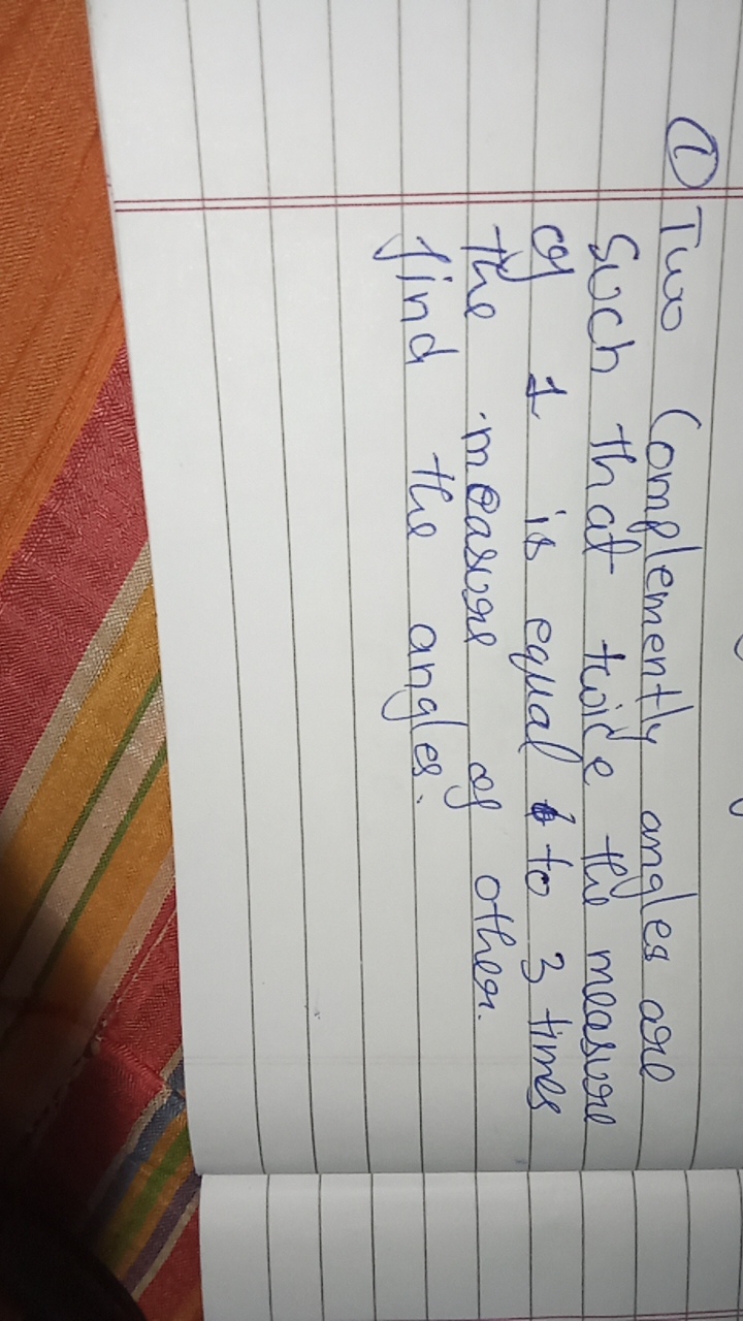 ① Two Complemently angles are
Such that twice the measure
of 1 is equal to 3 times
the measure of other.
find the angles.